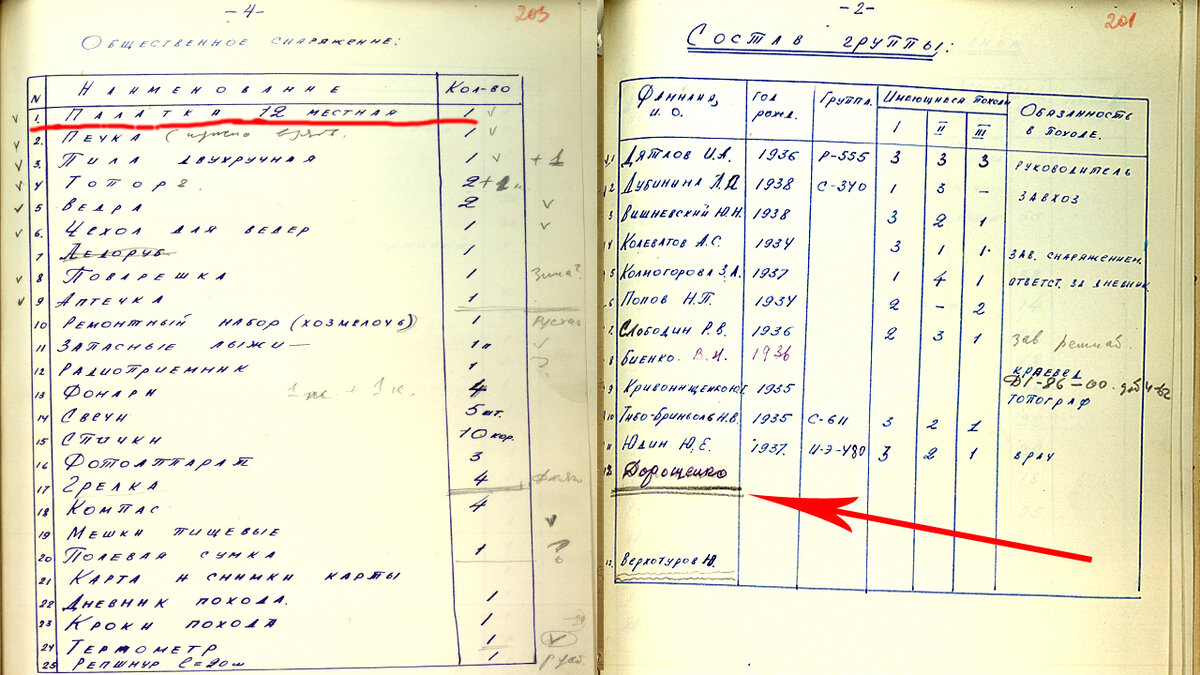 -4-
203
Общественное снаряжение:
N Наименование Кол-во
1. Палатка 12 местная 1
2. Печка 1
3. Пила двухручная 1 +1
4 Топор 2
5 Ведра 2
6. Чехол для ведер 1
7 Ледоруб 1
8 Поварешка 1
9 Аптечка 1
10 Ремонтный набор (хозмелочь) 1
11 Запасные лыжи — 1п
12 Радиоприемник 1 ?
13 Фонари 4
14 Свечи 5 шт.
15 Спички 10 кор.
16 Фотоаппарат 3
17 Грелка 4
18 Компас 4
19 Мешки пищевые
20 Полевая сумка 1 ?
21 Карта и снимки карты
22 Дневник похода. 1
23 Кроки похода 1
24 Термометр 1
25 Репшнур l=20м 1
-2-
201
Состав группы:
Фамилия, И.О. год рожд. Группа. Имеющиеся походы I II III Обязанность в походе.
1 Дятлов И.А. 1936 Р-555 3 3 3 руководитель
2 Дубинина Л.А 1938 С-340 1 3 – завхоз
3 Вишневский Ю.Н. 1938 3 2 1
4 Колеватов А.С. 1934 3 1 1 зав. снаряжением.
5 Колмогорова З.А. 1937 1 4 1 ответст. за дневник
6 Попов Н.П. 1934 2 – 2
7 Слободин Р.В. 1936 2 3 1 зав ремнаб.
8 Биенко. В.Н. 1936 краевед
Д1-86-00. доб 4-62
9 Кривонищенко Ю.Г. 1935 топограф
10 Тибо-Бриньоль Н.В. 1935 С-611 3 2 1
11 Юдин Ю.Е. 1937. И-Э-480 3 2 1 врач
Дорошенко
12. Верхотуров Ю.